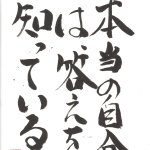 本当の自分
は、答えを
知っている